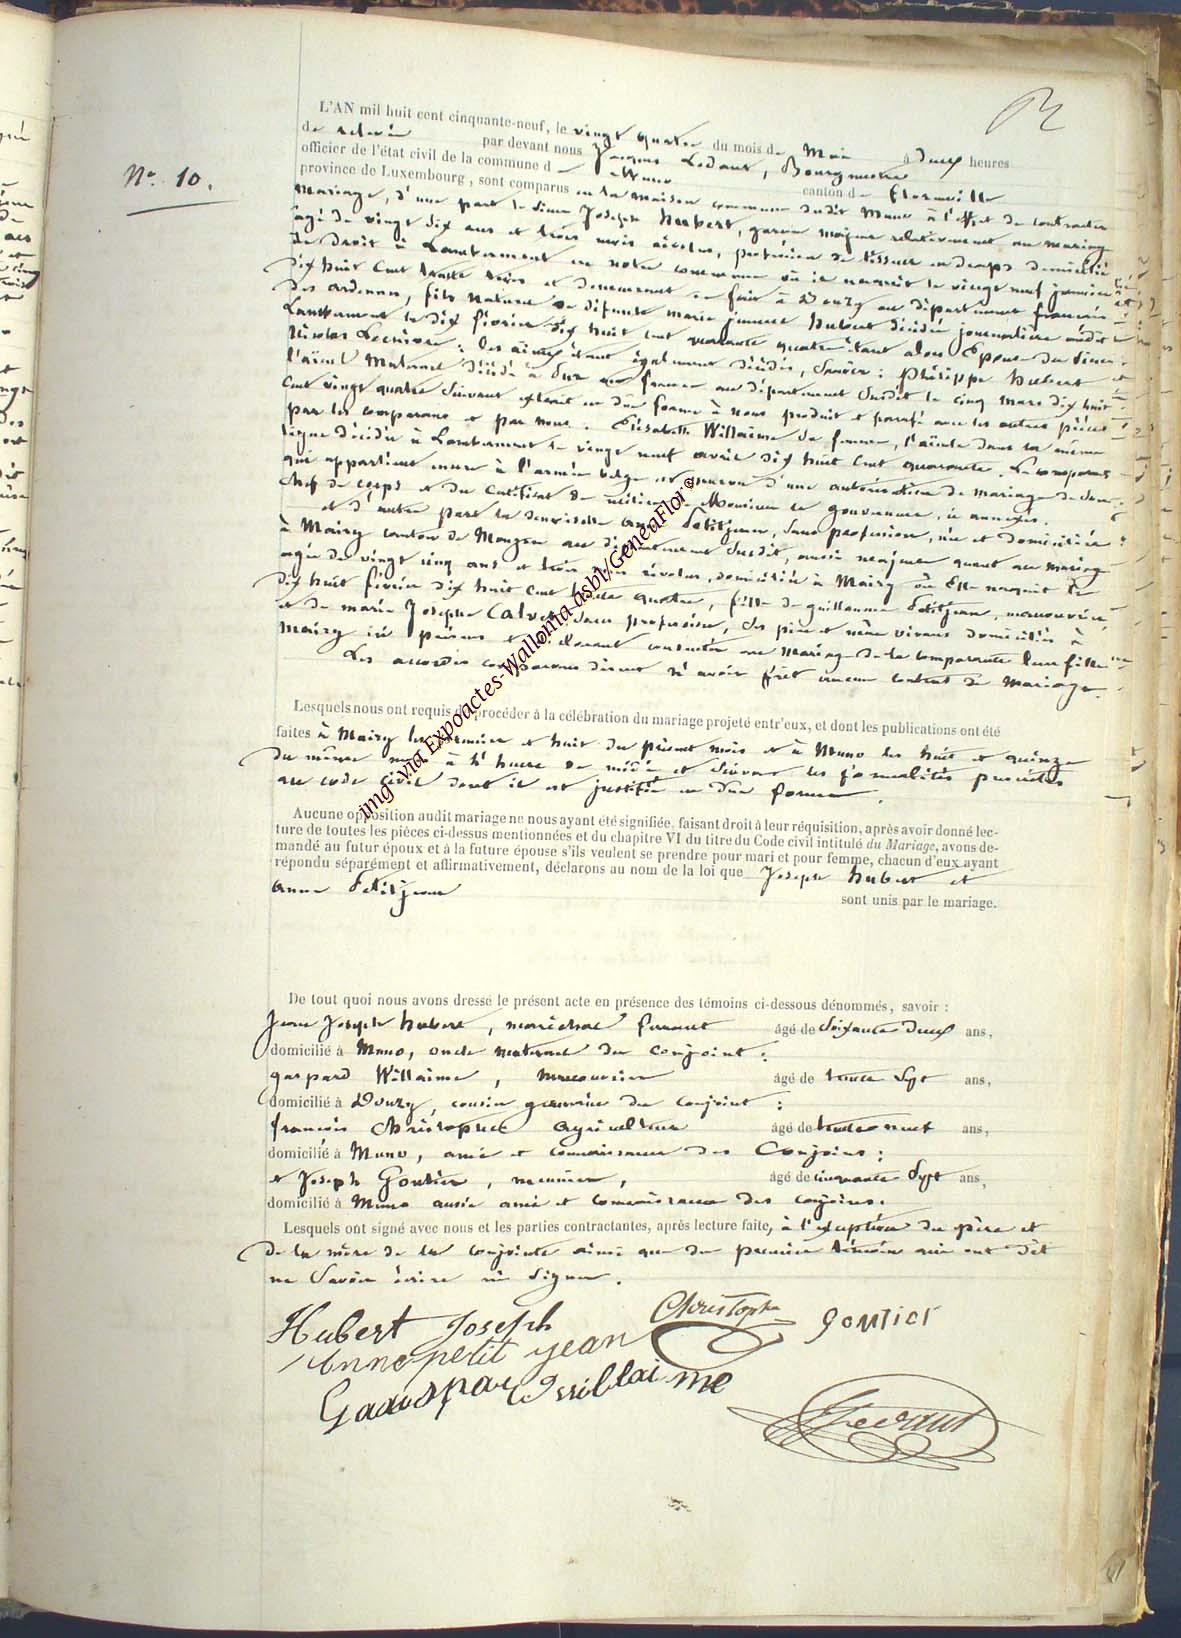 N.º 10.
L'AN mil huit cent cinquante-neuf, le vingt quatre du mois de Mai à deux heures
de relevée par devant nous Jacques Ledant, Bourgmestre
officier de l'état civil de la commune d Muno canton de Florenville
province de Luxembourg, sont comparus en la maison commune dudit Muno à l'effet de contracter
Mariage, d'une part le sieur Joseph Hubert, garçon majeur relativement au mariage
âgé de vingt six ans et trois mois révolus, profession de tisseur en draps domicilié
de droit à Lambermont en notre commune où il naquit le vingt neuf janvier
dix huit cent trente trois et demeurant en fait à Douzy au département français
des ardennes, fils naturel de défunte marie jeanne Hubert décédée journalière audit
Lambermont le dix février dix huit cent quarante quatre étant alors Epouse du sieur
Nicolas ; les aïeux étant également décédés, savoir : Philippe hubert
l'aïeul Maternel décédé à en france au département susdit le cinq Mars dix huit
cent vingt quatre suivant extrait en due forme à nous produit et paraphé avec les autres pièces
par les comparans et par nous. Elisabeth Willaime sa femme, l'aïeule dans la même
ligne décédée à Lambermont le vingt neuf avril dix huit cent quarante. Le comparant
qui appartient encore à l'armée belge est pourvu d'une autorisation de mariage de son
chef de corps et du certificat de milice de Monsieur le gouverneur, ci annexés.
et d'autre part la demoiselle anne Petitjean, sans profession, née et domiciliée
à Mairy canton de Mouzon au département susdit, aussi majeure quant au mariage
agée de vingt cinq ans et trois mois révolus, domiciliée à Mairy où Elle naquit le
dix huit février dix huit cent trente quatre, fille de guillaume Petitjean, manouvrier,
et de marie Joseph Calvet sans profession, ses père et mère vivans domiciliés à
Mairy ici présens et déclarant consentir au Mariage de la comparante leur fille
Les accordés comparans disent n'avoir fait aucun contrat de Mariage.
Lesquels nous ont requis de procéder à la célébration du mariage projeté entr'eux, et dont les publications ont été
faites à Mairy les premier et huit du présent mois et à Muno les huit et quinze
du même mois à l'heure de midi et suivant les formalités prescrites
au code civil dont il est justifié en due forme.
Aucune opposition audit mariage ne nous ayant été signifiée, faisant droit à leur réquisition, après avoir donné lec-
ture de toutes les pièces ci-dessus mentionnées et du chapitre VI du titre du Code civil intitulé du Mariage, avons de-
mandé au futur époux et à la future épouse s'ils veulent se prendre pour mari et pour femme, chacun d'eux ayant
répondu séparément et affirmativement, déclarons au nom de la loi que Joseph hubert et
anne Petitjean
sont unis par le mariage.
De tout quoi nous avons dressé le présent acte en présence des témoins ci-dessous dénommés, savoir :
Jean Joseph hubert, maréchal ferrant âgé de Soixante deux ans,
domicilié à Muno, oncle maternel du conjoint ;
gaspard Willaime, manouvrier âgé de trente sept ans,
domicilié à Douzy, cousin germain du conjoint ;
françois Christophe agriculteur âgé de trente neuf ans,
domicilié à Muno, ami et connaissance des Conjoins ;
et Joseph Goutier, meunier, âgé de cinquante Sept ans,
domicilié à Muno aussi ami et connaissance des conjoins.
Lesquels ont signé avec nous et les parties contractantes, après lecture faite, à l'exception du père et
de la mère de la conjointe ainsi que du premier témoin qui ont dit
ne Savoir écrire ni signer.
Hubert Joseph Christophe goutier
Anne petit jean
Gaaspar Willaime
Ledant
img via Expoactes-Wallonia asbl/GeneaFlor ©